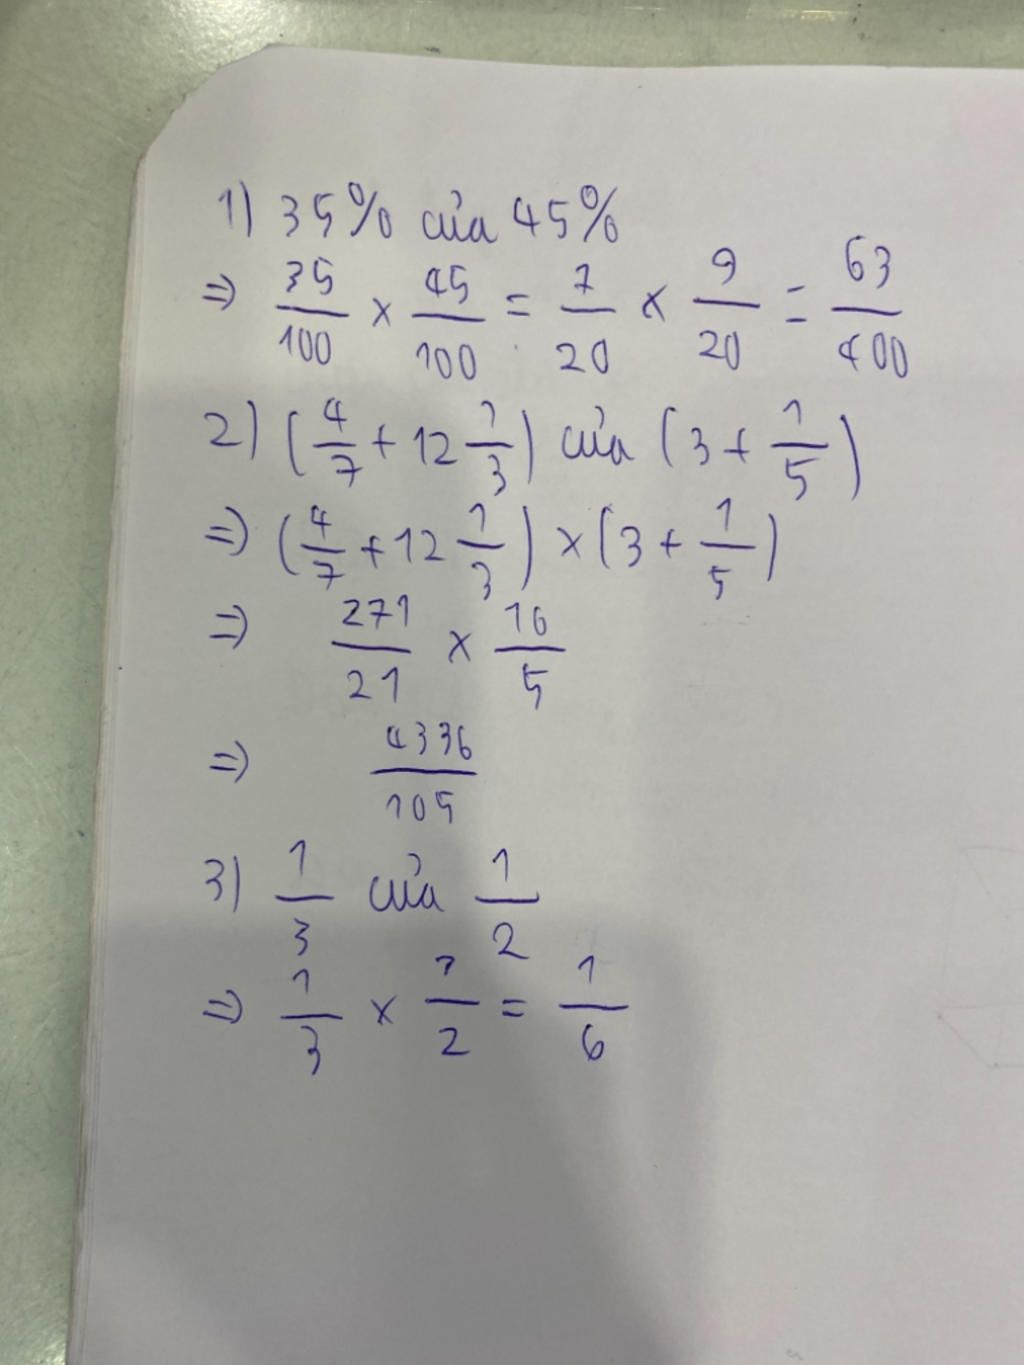 1) 35% của 45%
⇒ 35/100 × 45/100 = 7/20 × 9/20 = 63/400
2) (4/7 + 12 1/3) của (3 + 1/5)
⇒ (4/7 + 12 1/3) × (3 + 1/5)
⇒ 271/21 × 16/5
⇒ 4336/105
3) 1/3 của 1/2
⇒ 1/3 × 1/2 = 1/6